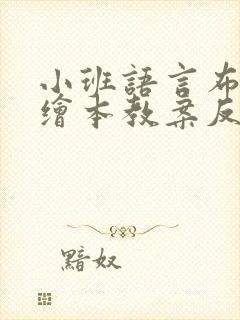 小班語言布
繪本教案反
黯奴